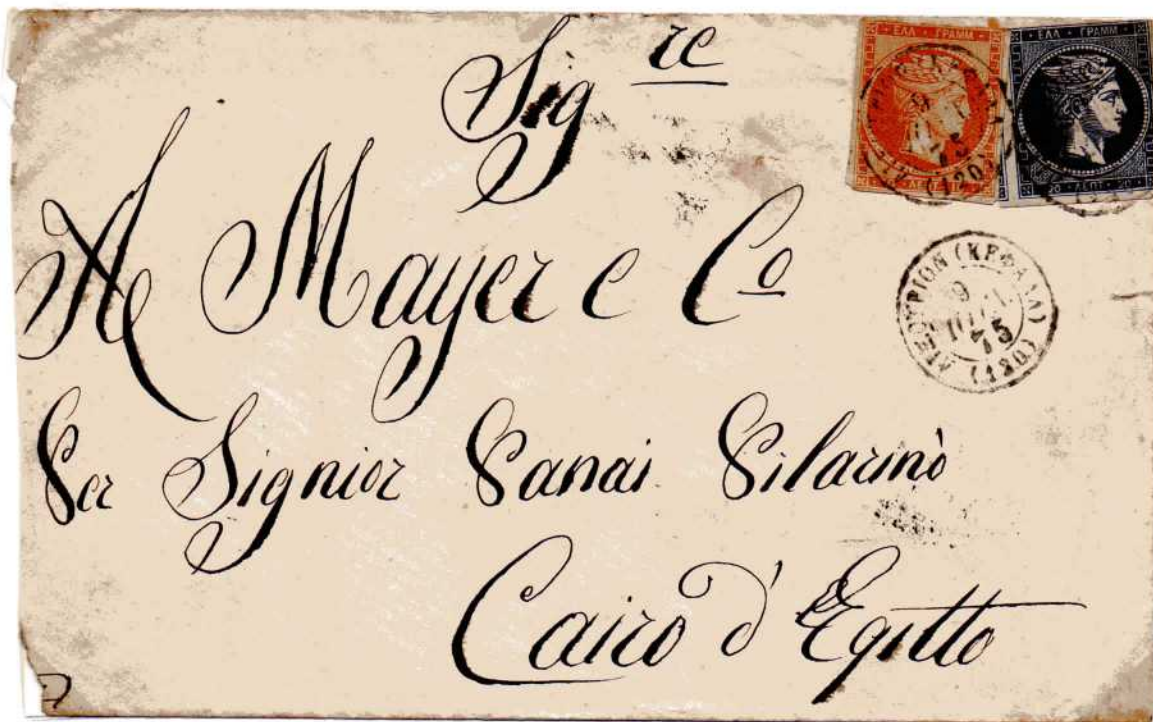 Sig re
A Mayer e Co
Per Signior Panai Pilarinò
Cairo d'Egitto
ΕΛΛ · ΓΡΑΜΜ
ΕΛΛ · ΓΡΑΜΜ
20 · ΛΕΠΤ · 20
(120)
75
ΛΗΞΟΥΡΙΟΝ (ΚΕΦΑΛΛ)
9
75